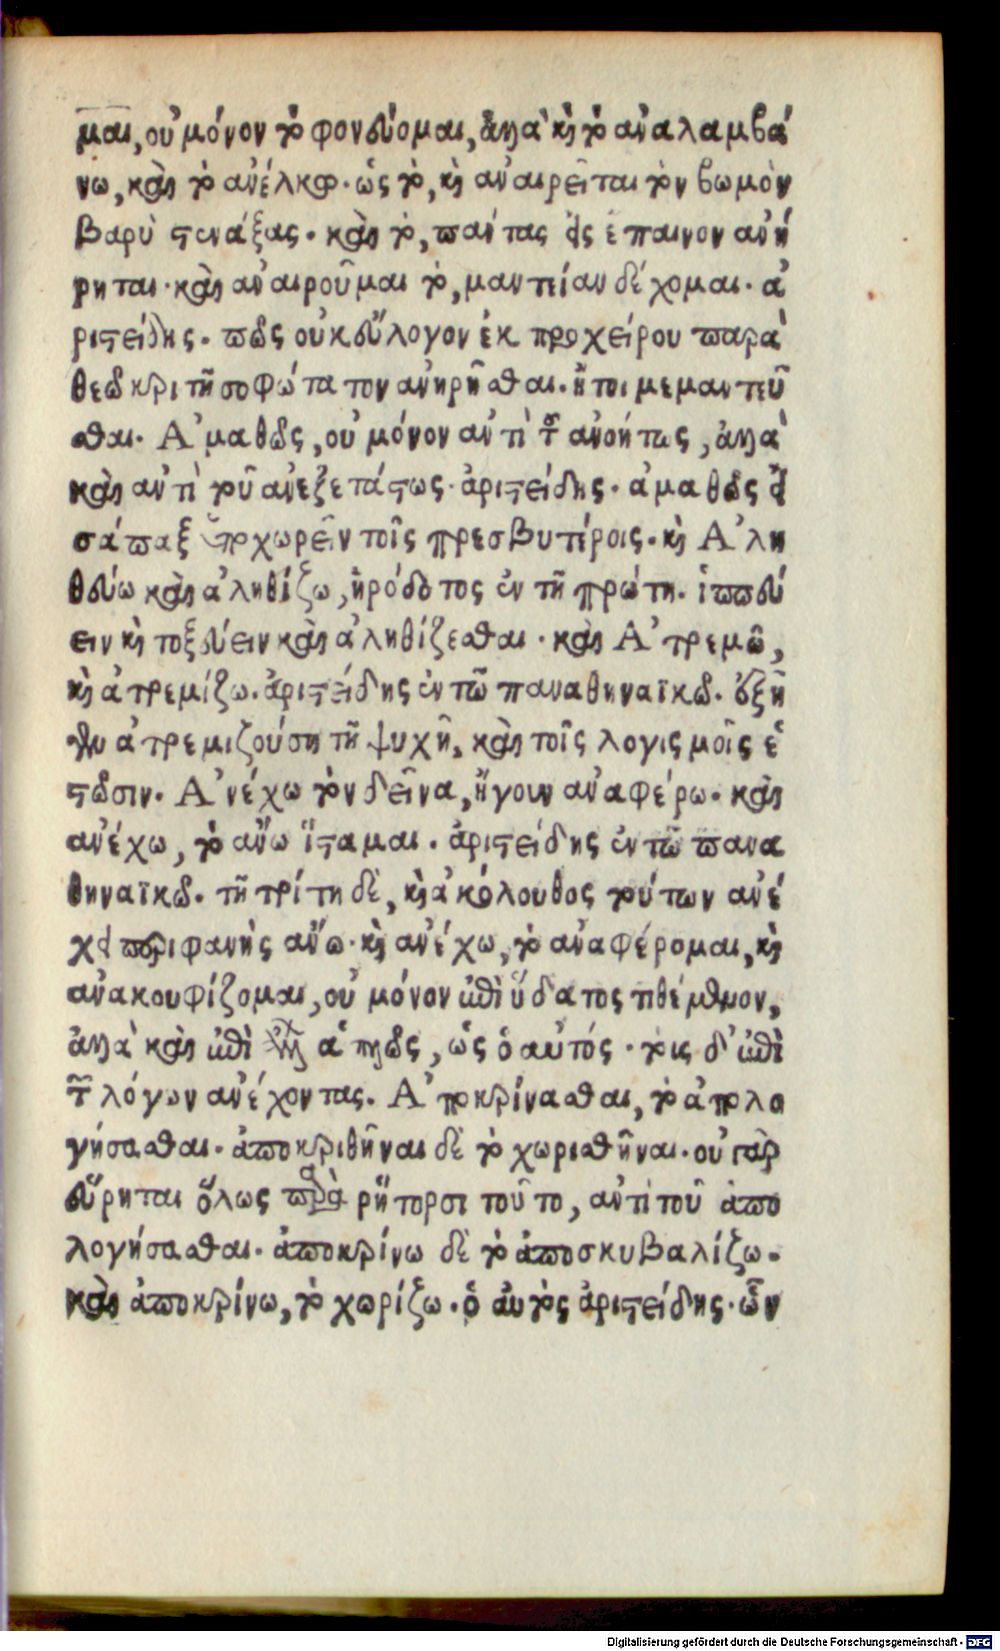 μαι, οὐ μόνον τὸ φονεύομαι, ἀλλὰ καὶ τὸ ἀναλαμβά
νω, καὶ τὸ ἀνέλκω. ὡς τὸ, καὶ ἀναιρεῖται τὸν βωμὸν
βαρὺ στενάξας. καὶ τὸ, πάντας εἰς ἔπαινον ἀνή
ρηται. καὶ ἀναιροῦμαι τὸ, μαντείαν δέχομαι. ἀ
ριστείδης. πῶς οὐκ εὔλογον ἐκ προχείρου παρὰ
θεῶ κριτῆ σοφώτατον ἀνηρῆσθαι. ἤτοι μεμαντεῦ
σθαι. Ἀμαθῶς, οὐ μόνον ἀντὶ τοῦ ἀνοήτως, ἀλλὰ
καὶ ἀντὶ τοῦ ἀνεξετάστως. ἀριστείδης. ἀμαθῶς εἰ
σάπαξ ὑποχωρεῖν τοῖς πρεσβυτέροις. καὶ Ἀλη
θεύω καὶ ἀληθίζω, ἡρόδοτος ἐν τῆ πρώτη. ἱππεύ
ειν καὶ τοξεύειν καὶ ἀληθίζεσθαι. καὶ Ἀτρεμῶ,
καὶ ἀτρεμίζω. ἀριστείδης ἐν τῶ παναθηναϊκῶ. ἐξῆ
λυ ἀτρεμιζούση τῆ ψυχῆ, καὶ τοῖς λογισμοῖς ἑ
στῶσιν. Ἀνέχω τὸν δεῖνα, ἤγουν ἀναφέρω. καὶ
ἀνέχω, τὸ ἄνω ἵσταμαι. ἀριστείδης ἐν τῶ πανα
θηναϊκῶ. τῆ τρίτη δὲ, καὶ ἀκόλουθος τούτων ἀνέ
χει περιφανὴς ἄνω. καὶ ἀνέχω, τὸ ἀναφέρομαι, καὶ
ἀνακουφίζομαι, οὐ μόνον ἐπὶ ὕδατος τιθέμενον,
ἀλλὰ καὶ ἐπὶ ἁπλῶς, ὡς ὁ αὐτός. τοις δ' ἐπὶ
τῶν λόγων ἀνέχοντας. Ἀποκρίνασθαι, τὸ ἀπολο
γήσασθαι. ἀποκριθῆναι δὲ τὸ χωρισθῆναι. οὐ γὰρ
εὕρηται ὅλως παρὰ ῥήτορσι τοῦτο, ἀντὶ τοῦ ἀπο
λογήσασθαι. ἀποκρίνω δὲ τὸ ἀποσκυβαλίζω.
καὶ ἀποκρίνω, τὸ χωρίζω. ὁ αὐτὸς ἀριστείδης. ὧν
Digitalisierung gefördert durch die Deutsche Forschungsgemeinschaft - DFG